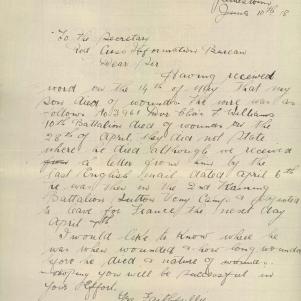 June 10th 18
"To the Secretary
Red Cross Information Bureau
Dear Sir
Having received
word on the 14th of May that my
Son died of wounds The wire was as
follows No 3961 Chas F Williams
10th Battalion died of wounds on the
28th of April. They did not State
where he died although we received
a letter from him by the
last English mail dated April 6th
he was then in the 2nd Training
Battalion, Sutton Veny Camp &
to leave for France the next day
April 7th
I would like to know where he
was when wounded & how long wounded
before he died & nature of wounds.
Hoping you will be successful in
your Effort.
Yrs Faithfully